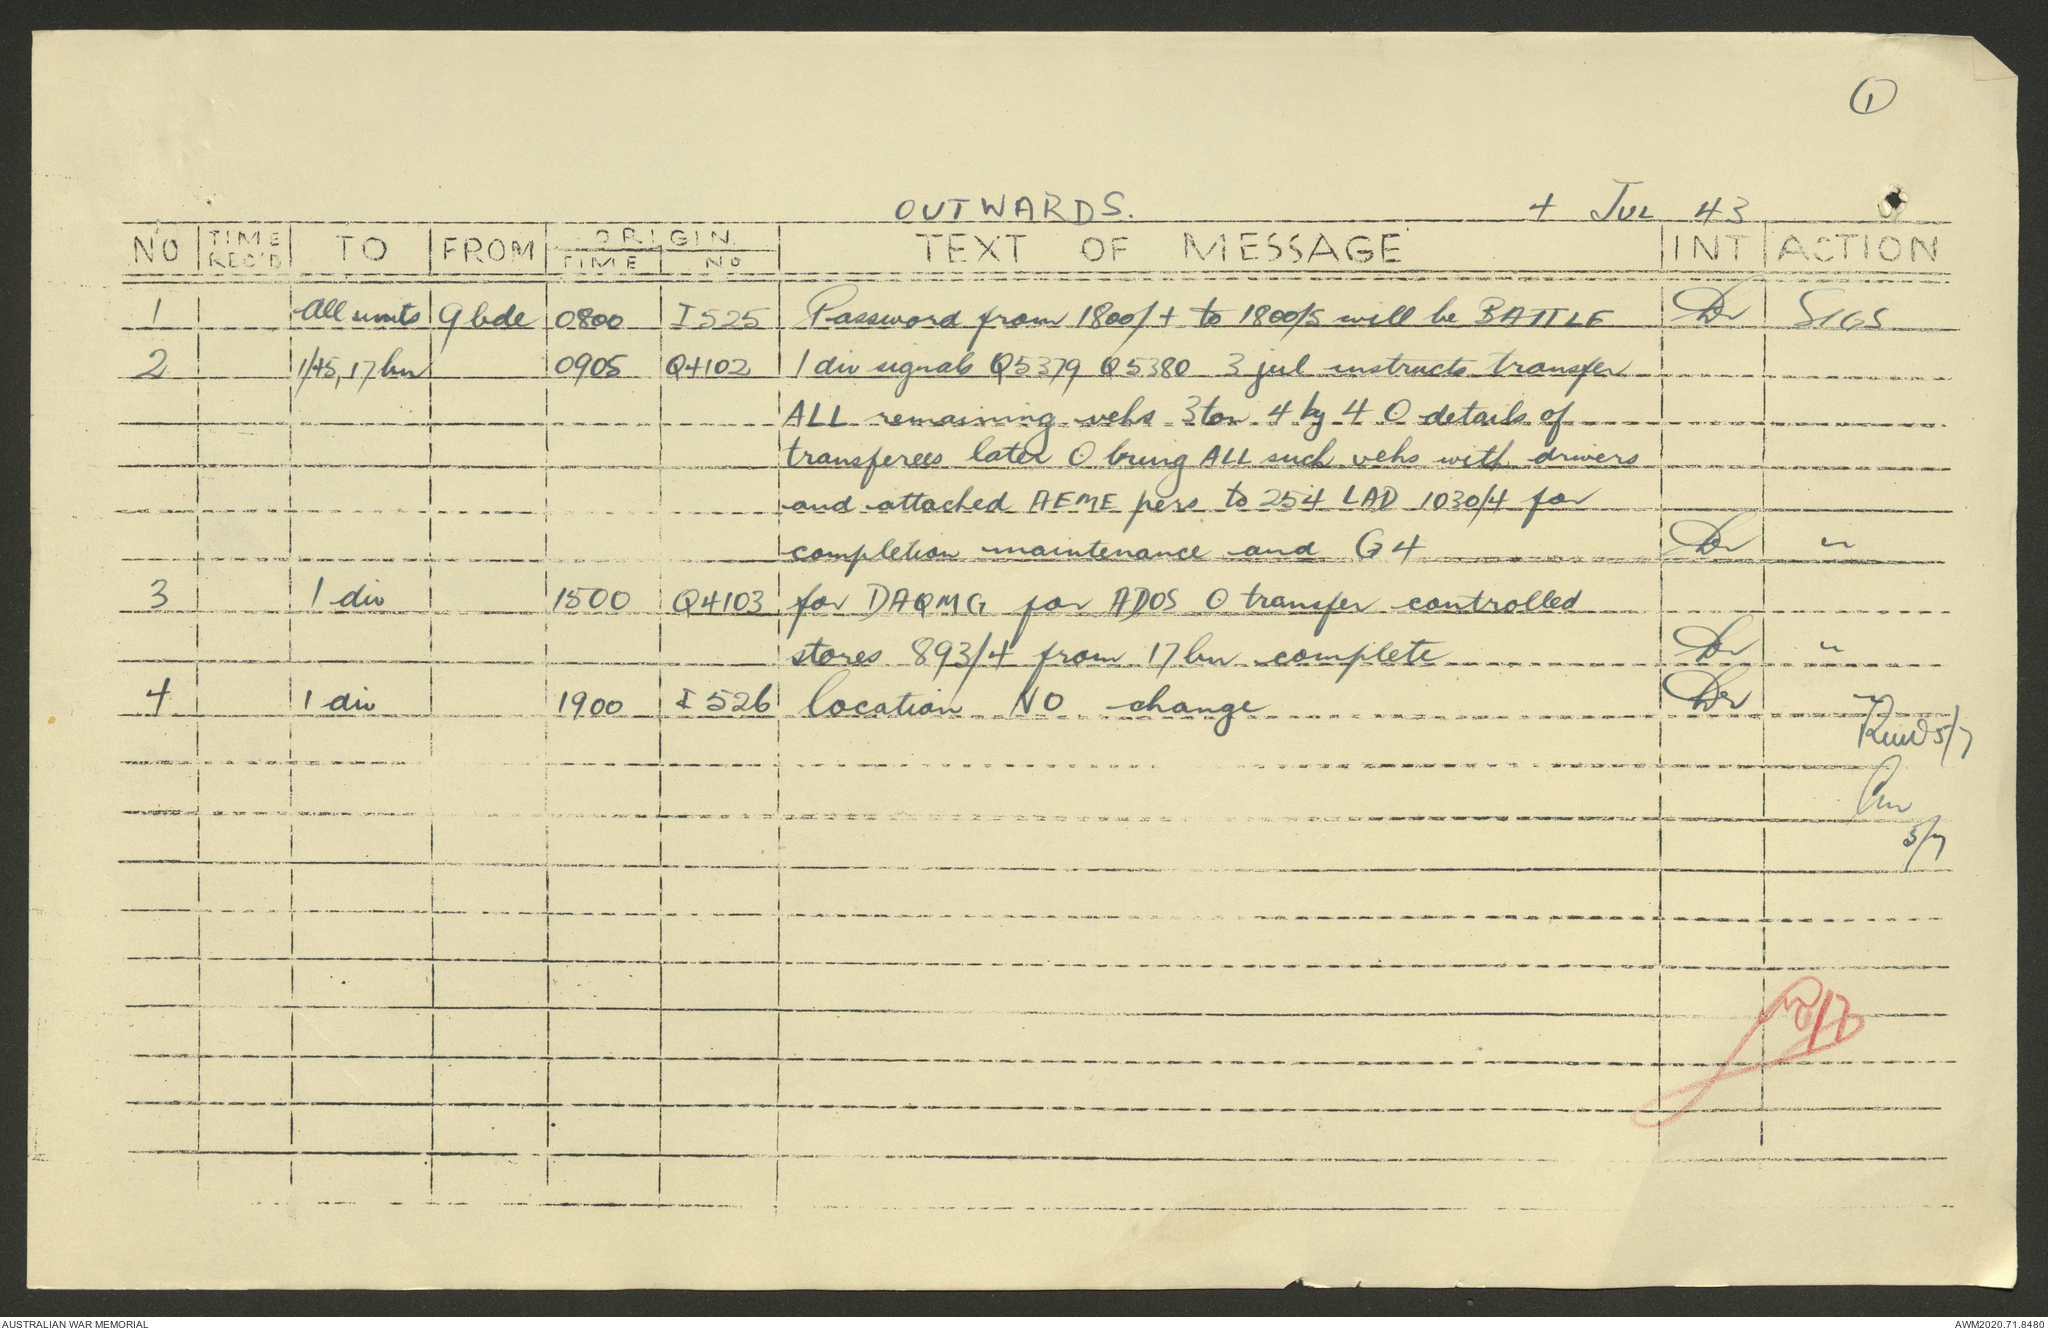 1
OUTWARDS. 4 JUL 43
NO TIME REC'D TO FROM ORIGIN TIME NO TEXT OF MESSAGE INT ACTION
1 All units 9 bde 0800 I 525 Password from 1800/4 to 1800/5 will be BATTLE SIGS
2 1/45, 17 bn 0905 Q4102 1 div signals Q5379 Q5380 3 jul instructs transfer
ALL remaining vehs 3 ton 4 by 4 O details of
transferees later O bring ALL such vehs with drivers
and attached AEME pers to 254 LAD 1030/4 for
completion maintenance and G4 "
3 1 div 1500 Q4103 for DAQMG for ADOS O transfer controlled
stores 893/4 from 17 bn complete "
4 1 div 1900 I 526 location NO change "
5/7
5/7
AUSTRALIAN WAR MEMORIAL AWM2020.71.8480